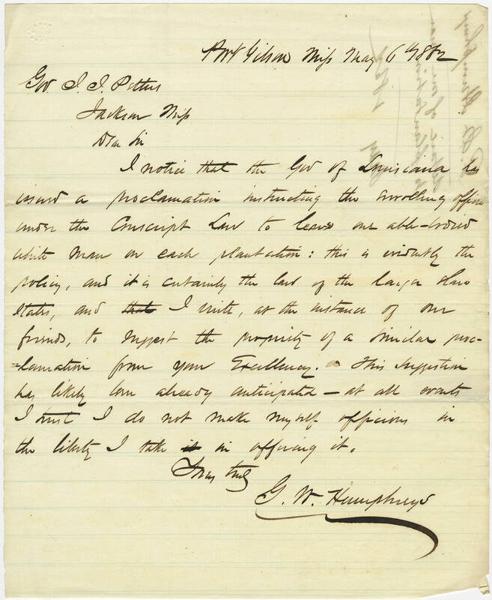 Port Gibson Miss May 6th 1862
Gov J. J. Pettus
Jackson Miss
Dear Sir
I notice that the Gov of Louisiana has
issued a proclamation instructing the enrolling officers
under the Conscript Law to leave one able-bodied
white man on each plantation: this is evidently the
policy, and it is certainly the law of the larger slave
States, and that I write, at the instance of our
friends, to suggest the propriety of a similar proc-
-lamation from your Excellency. This suggestion
has likely been already anticipated — at all events
I trust I do not make myself officious in
the liberty I take it in offering it.
Yours truly
G. W. Humphreys